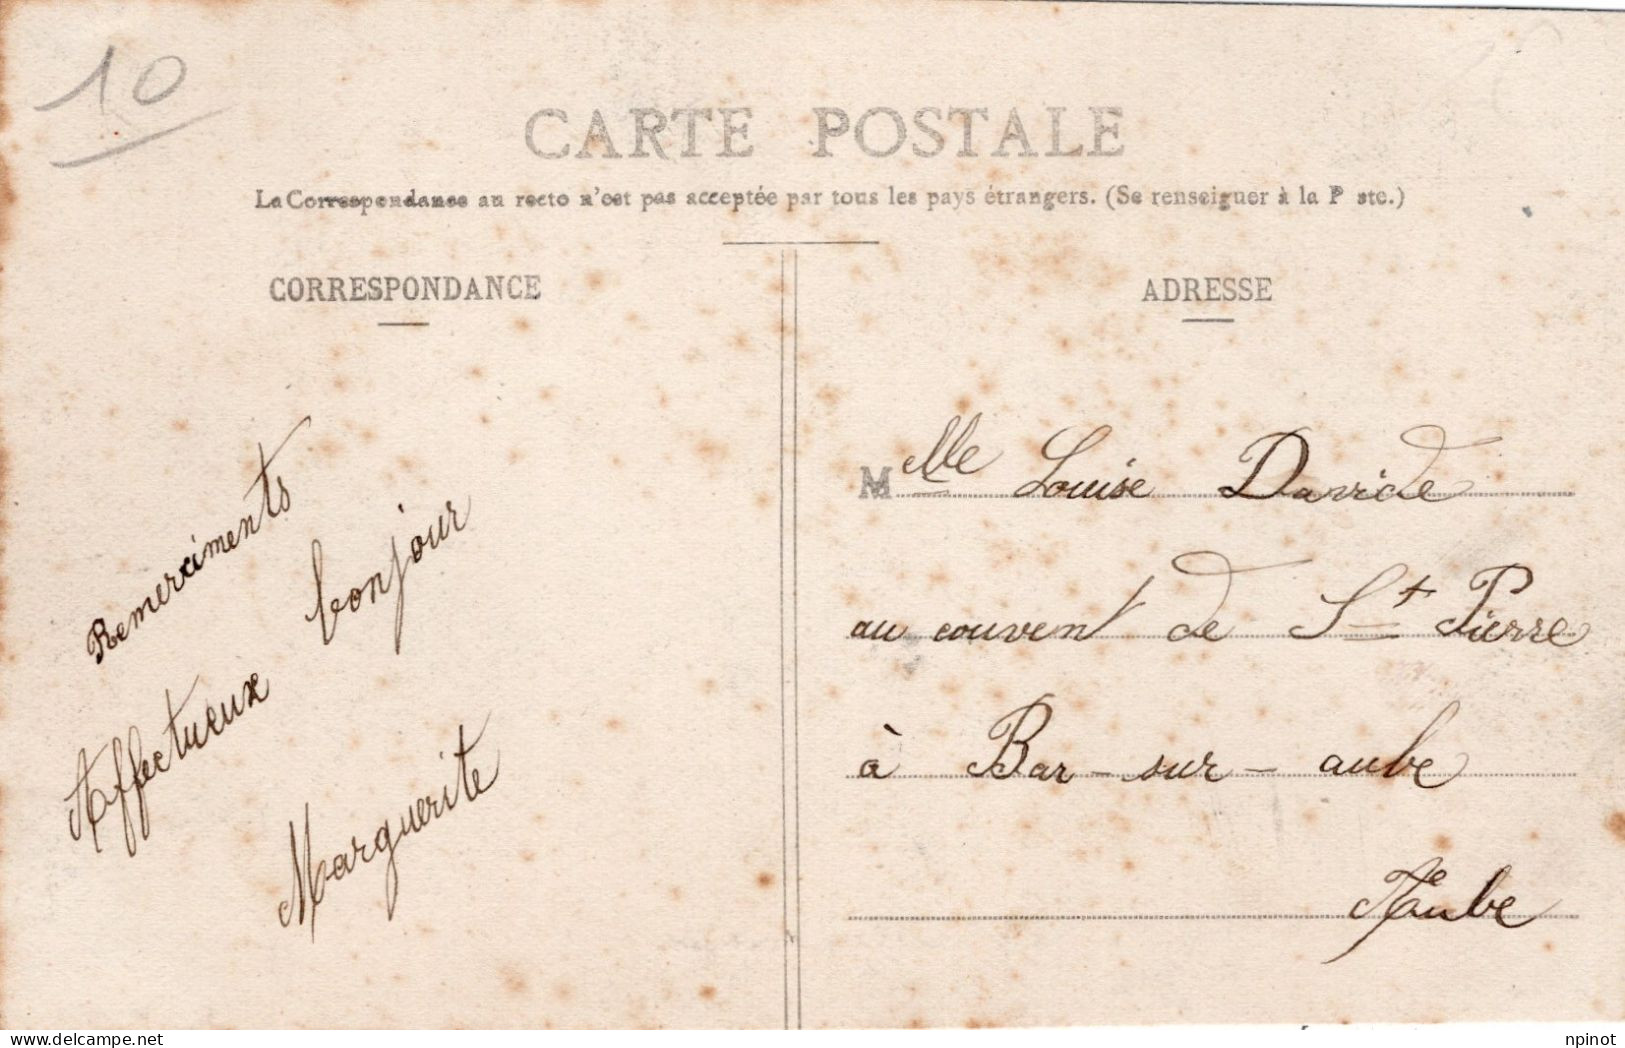 10
CARTE POSTALE
La Correspondance au recto n'est pas acceptée par tous les pays étrangers. (Se renseigner à la P ste.)
CORRESPONDANCE
Remerciments
Affectueux bonjour
Marguerite
ADRESSE
Mlle Louise Davide
au couvent de St Pierre
à Bar-sur-aube
Aube
delcampe.net
npinot